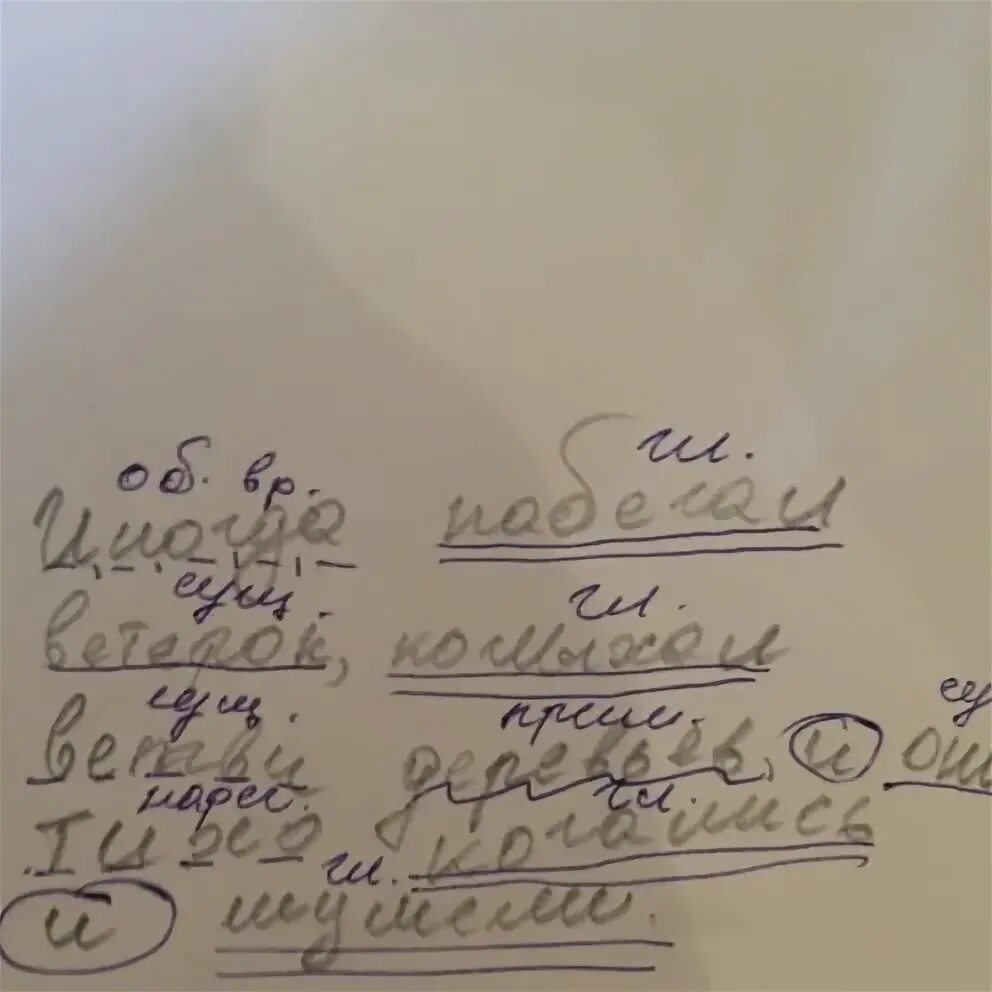 гл.
об. вр.
Иногда набегал
сущ. гл.
ветерок, колыхал
сущ. прил. су
ветви деревьев, и они
нареч. гл.
тихо качались
гл.
и шумели.